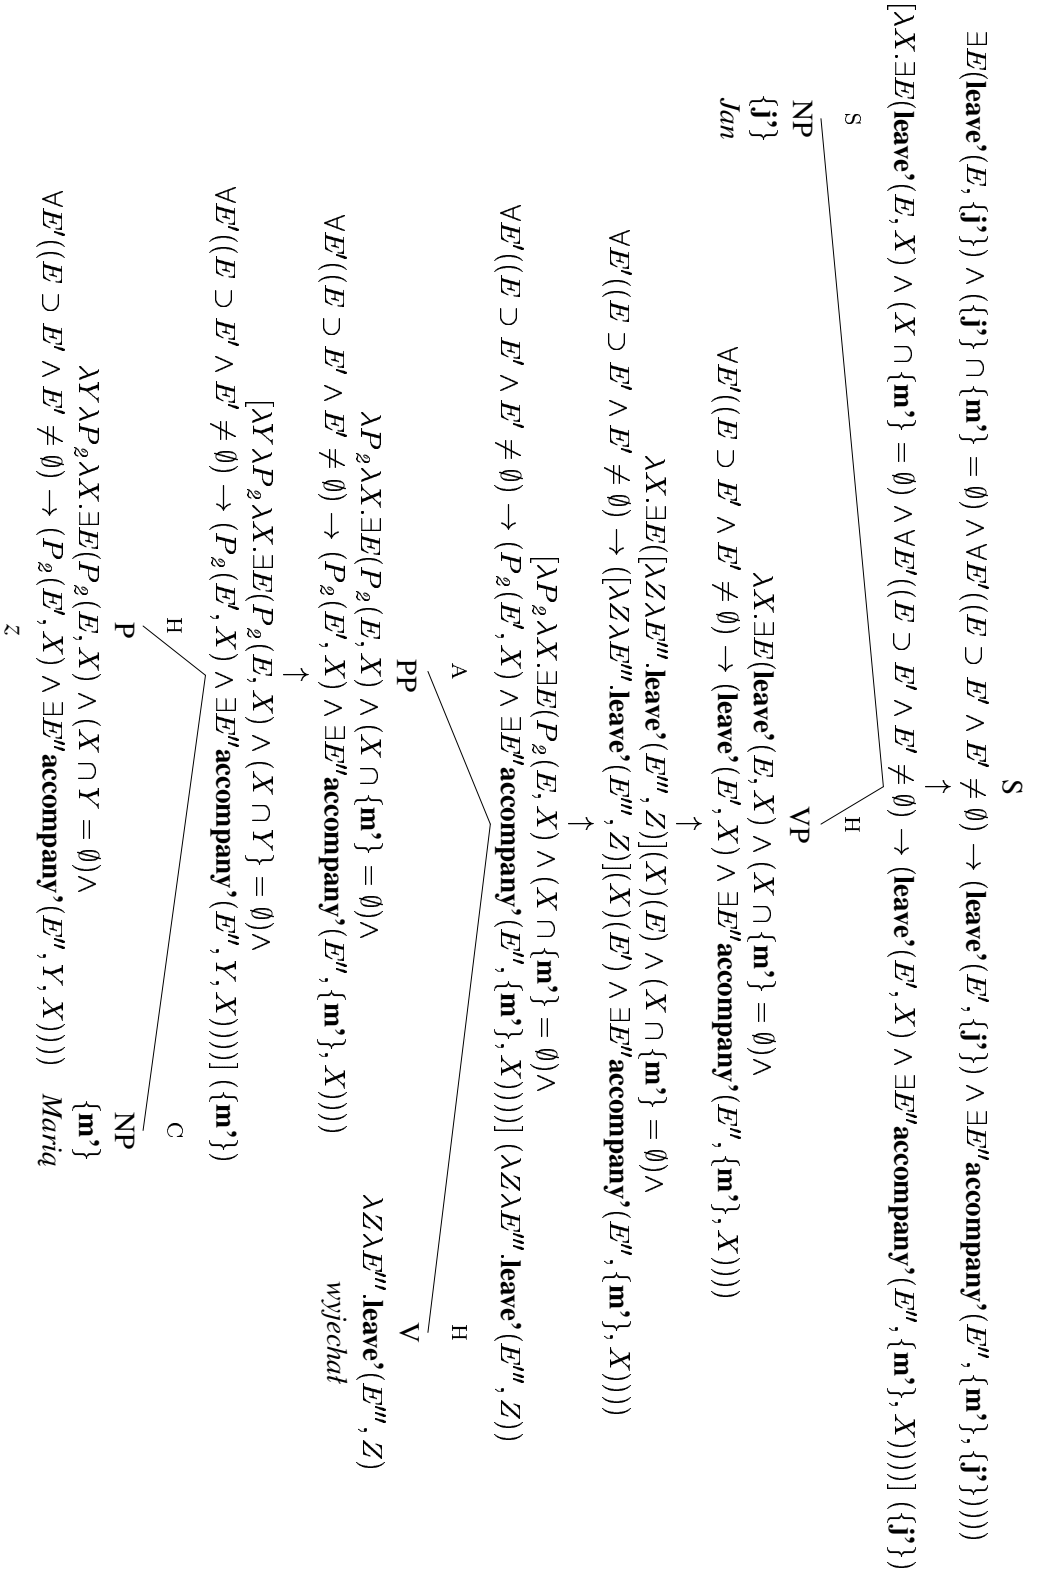 S
∃E(leave’(E, {j’}) ∧ ({j’} ∩ {m’} = ∅) ∧ ∀E′((E ⊃ E′ ∧ E′ ≠ ∅) → (leave’(E′, {j’}) ∧ ∃E″accompany’(E″, {m’}, {j’}))))
↑
[λX.∃E(leave’(E, X) ∧ (X ∩ {m’} = ∅) ∧ ∀E′((E ⊃ E′ ∧ E′ ≠ ∅) → (leave’(E′, X) ∧ ∃E″accompany’(E″, {m’}, X))))] ({j’})
S H
NP
{j’}
Jan
VP
λX.∃E(leave’(E, X) ∧ (X ∩ {m’} = ∅)∧
∀E′((E ⊃ E′ ∧ E′ ≠ ∅) → (leave’(E′, X) ∧ ∃E″accompany’(E″, {m’}, X))))
↑
λX.∃E([λZλE‴.leave’(E‴, Z)](X)(E) ∧ (X ∩ {m’} = ∅)∧
∀E′((E ⊃ E′ ∧ E′ ≠ ∅) → ([λZλE‴.leave’(E‴, Z)](X)(E′) ∧ ∃E″accompany’(E″, {m’}, X))))
↑
[λP₂λX.∃E(P₂(E, X) ∧ (X ∩ {m’} = ∅)∧
∀E′((E ⊃ E′ ∧ E′ ≠ ∅) → (P₂(E′, X) ∧ ∃E″accompany’(E″, {m’}, X))))] (λZλE‴.leave’(E‴, Z))
A H
PP
λP₂λX.∃E(P₂(E, X) ∧ (X ∩ {m’} = ∅)∧
∀E′((E ⊃ E′ ∧ E′ ≠ ∅) → (P₂(E′, X) ∧ ∃E″accompany’(E″, {m’}, X))))
V
λZλE‴.leave’(E‴, Z)
wyjechał
↑
[λYλP₂λX.∃E(P₂(E, X) ∧ (X ∩ Y} = ∅)∧
∀E′((E ⊃ E′ ∧ E′ ≠ ∅) → (P₂(E′, X) ∧ ∃E″accompany’(E″, Y, X))))] ({m’})
H C
P
λYλP₂λX.∃E(P₂(E, X) ∧ (X ∩ Y = ∅)∧
∀E′((E ⊃ E′ ∧ E′ ≠ ∅) → (P₂(E′, X) ∧ ∃E″accompany’(E″, Y, X))))
z
NP
{m’}
Marią